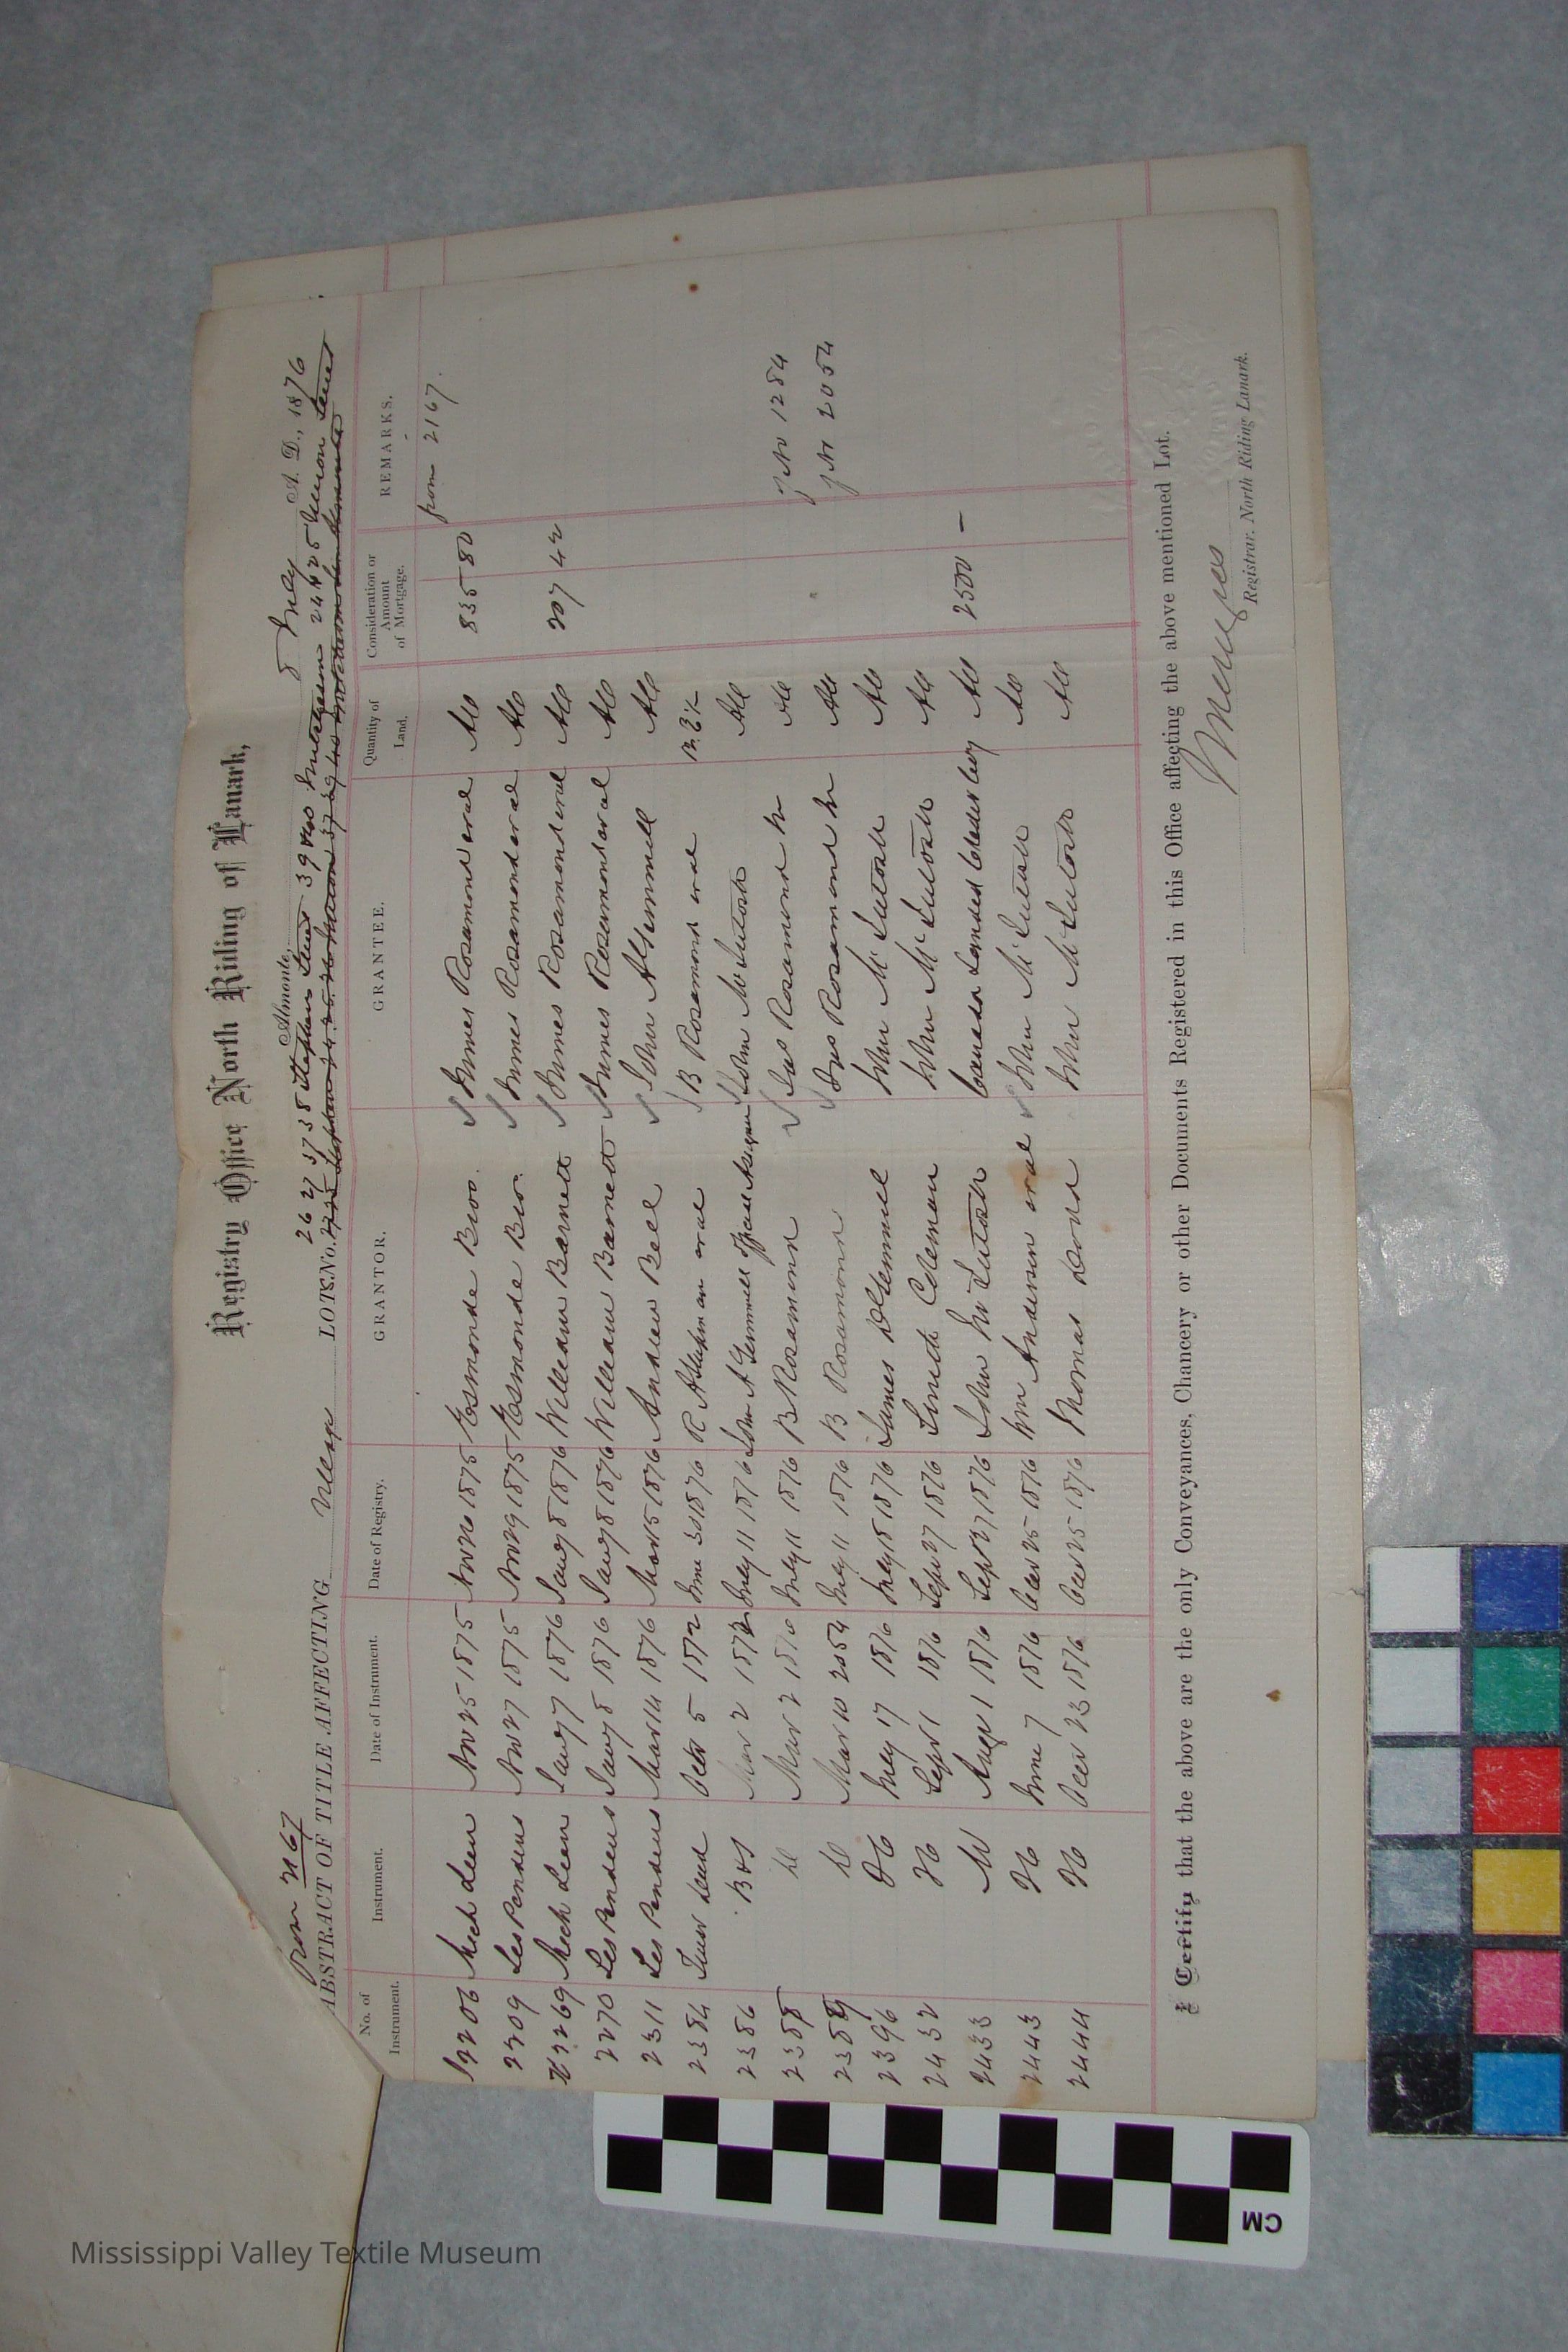 Registry Office North Riding of Lanark,
from 2167
Almonte, 8 July A. D., 1876
26 27 37 38 Stephens Lewis 39 & 40 24 & 25
ABSTRACT OF TITLE AFFECTING LOTS No.
No. of Instrument. Instrument. Date of Instrument. Date of Registry. GRANTOR. GRANTEE. Quantity of Land. Consideration or Amount of Mortgage. REMARKS.
from 2167.
2206 Mech Lien Nov 25 1875 Nov 26 1875 Esmonde Bros. James Rosamond et al All 835 80
2209 Les Pendens Nov 27 1875 Nov 29 1875 Esmonde Bro. James Rosamond et al All
2269 Mech Lien Jany 7 1876 Jany 8 1876 William Barnett James Rosamond et al All 207 42
2270 Les Pendens Jany 8 1876 Jany 8 1876 William Barnett James Rosamond et al All
2311 Les Pendens Mar 14 1876 Mar 15 1876 Andrew Bell John A Gemmill All
2384 Deed Octr 5 1872 June 30 1876 R et al B Rosamond et al
2386 B & S Mar 2 July 11 1876 John A Gemmill Offcl Assignee John McIntosh All
2388 Mar 2 1876 July 11 1876 B Rosamond Jas Rosamond Jr All 1284
2389 Mar 10 2054 July 11 1876 B Rosamond Jas Rosamond Jr All 2054
2396 July 17 1876 July 18 1876 James D Gemmill John McIntosh All
2432 Sept 1 1876 Sept 27 1876 Coleman John McIntosh All
2433 M Augt 1 1876 Sept 27 1876 John McIntosh Canada Landed Credit Coy All 2500 —
2443 June 7 1876 Octr 25 1876 Wm Anderson et al John McIntosh All
2444 Octr 23 1876 Octr 25 1876 Thomas Dowd John McIntosh All
I Certify that the above are the only Conveyances, Chancery or other Documents Registered in this Office affecting the above mentioned Lot.
Registrar. North Riding Lanark.
CM
Mississippi Valley Textile Museum